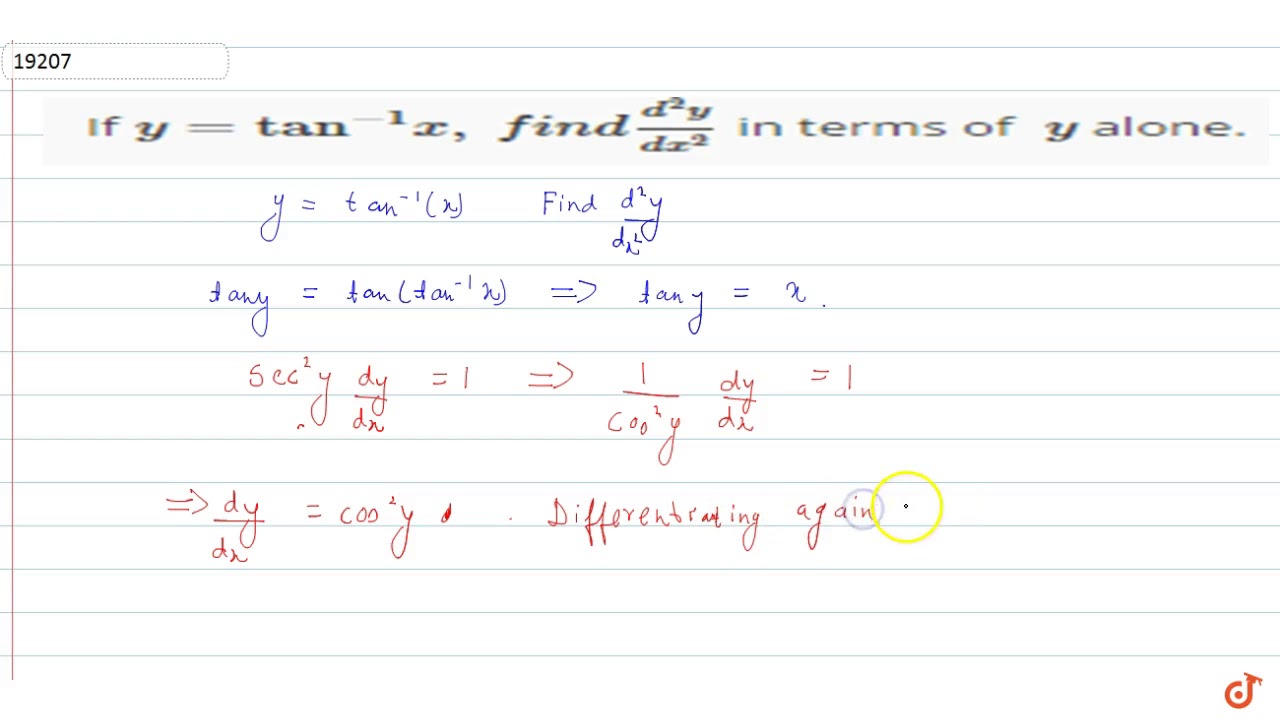 19207
If y = tan⁻¹x, find d²y/dx² in terms of y alone.
y = tan⁻¹(x) Find d²y/dx²
tany = tan(tan⁻¹x) => tany = x.
Sec²y dy/dx = 1 => 1/cos²y dy/dx = 1
=> dy/dx = cos²y . Differentiating again